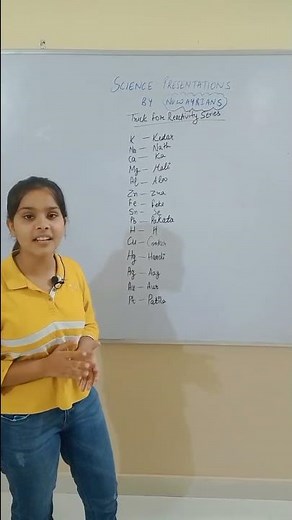 SCIENCE PRESENTATIONS
BY NEWAYRIANS
Trick for Reactivity Series
K — Kedar
Na — Nath
Ca — Ka
Mg — Mali
Al — Aloo
Zn — Zra
Fe — Feke
Sn — Se
Pb — Pakata
H — H
Cu —
Hg —
Ag — Aag
Au — Aur
Pt —